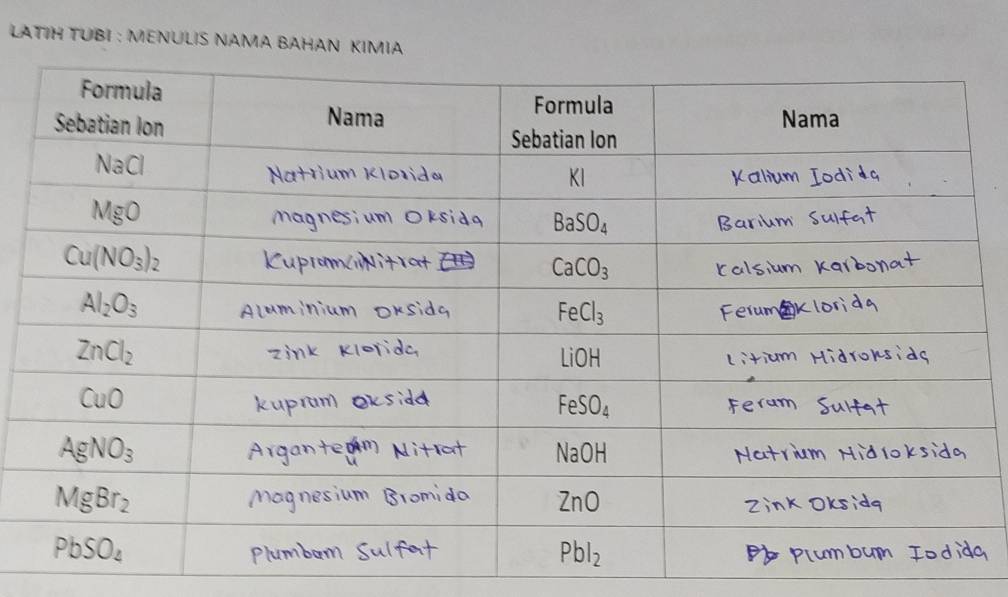 LATIH TUBI : MENULIS NAMA BAHAN KIMIA
Formula Sebatian Ion Nama Formula Sebatian Ion Nama
NaCl Natrium Klorida KI Kalium Iodida
MgO magnesium Oksida BaSO₄ Barium Sulfat
Cu(NO₃)₂ Kuprum(II)Nitrat CaCO₃ Kalsium Karbonat
Al₂O₃ Aluminium Oksida FeCl₃ Ferum Klorida
ZnCl₂ zink Klorida LiOH Litium Hidroksida
CuO Kuprum oksida FeSO₄ Ferum Sulfat
AgNO₃ Nitrat NaOH Natrium Hidroksida
MgBr₂ Magnesium Bromida ZnO Zink Oksida
PbSO₄ Plumbum Sulfat PbI₂ Plumbum Iodida